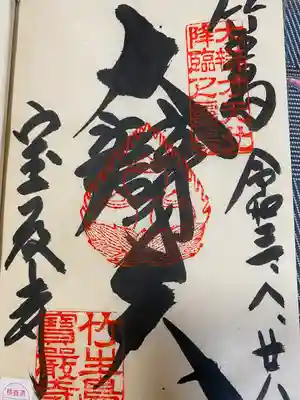 竹生島
令和三.八.廿八
大辯才天
宝厳寺
降臨之
竹生島
寶嚴寺